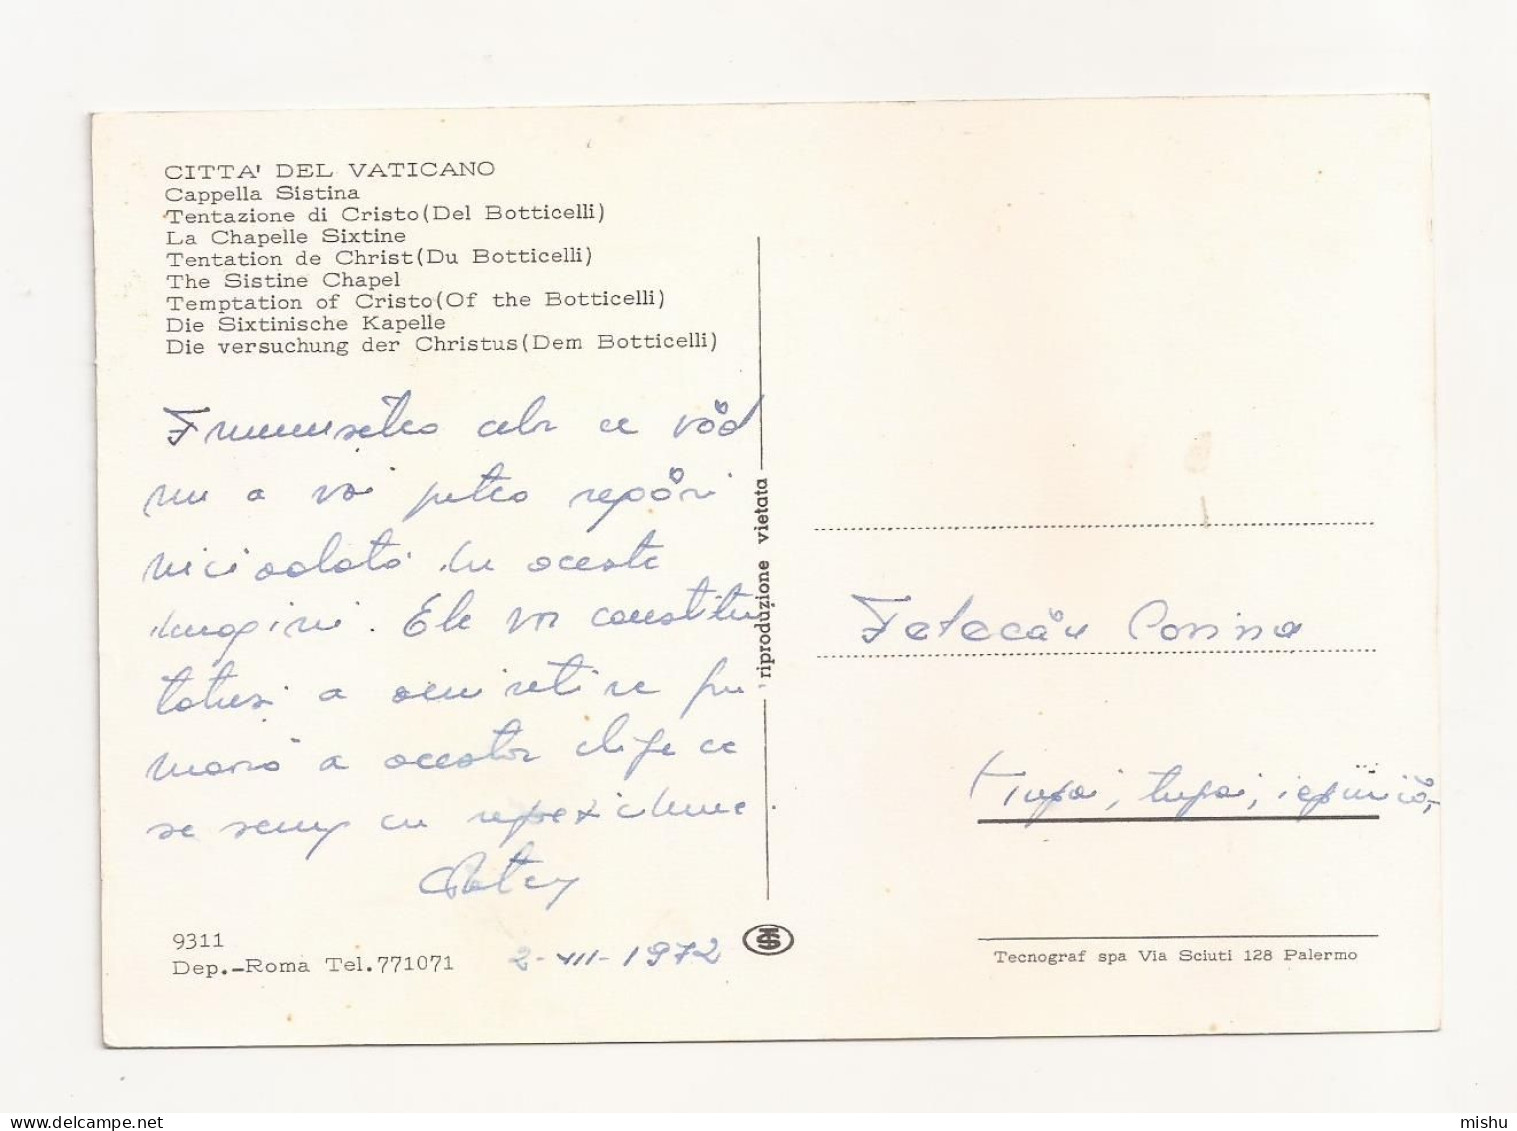 CITTA' DEL VATICANO
Cappella Sistina
Tentazione di Cristo(Del Botticelli)
La Chapelle Sixtine
Tentation de Christ(Du Botticelli)
The Sistine Chapel
Temptation of Cristo(Of the Botticelli)
Die Sixtinische Kapelle
Die versuchung der Christus(Dem Botticelli)
Frumusețea celor ce văd
nu a voi putea repări
niciodată în aceste
imagini. Ele vor constitui
totuși a amintire
a acestor clipe ce
se scurg cu repeziciune.
9311
Dep.-Roma Tel.771071
2-VII-1972
riproduzione vietata
Fetecău Corina
Țupai, țupai, iepuraș,
Tecnograf spa Via Sciuti 128 Palermo
mishu